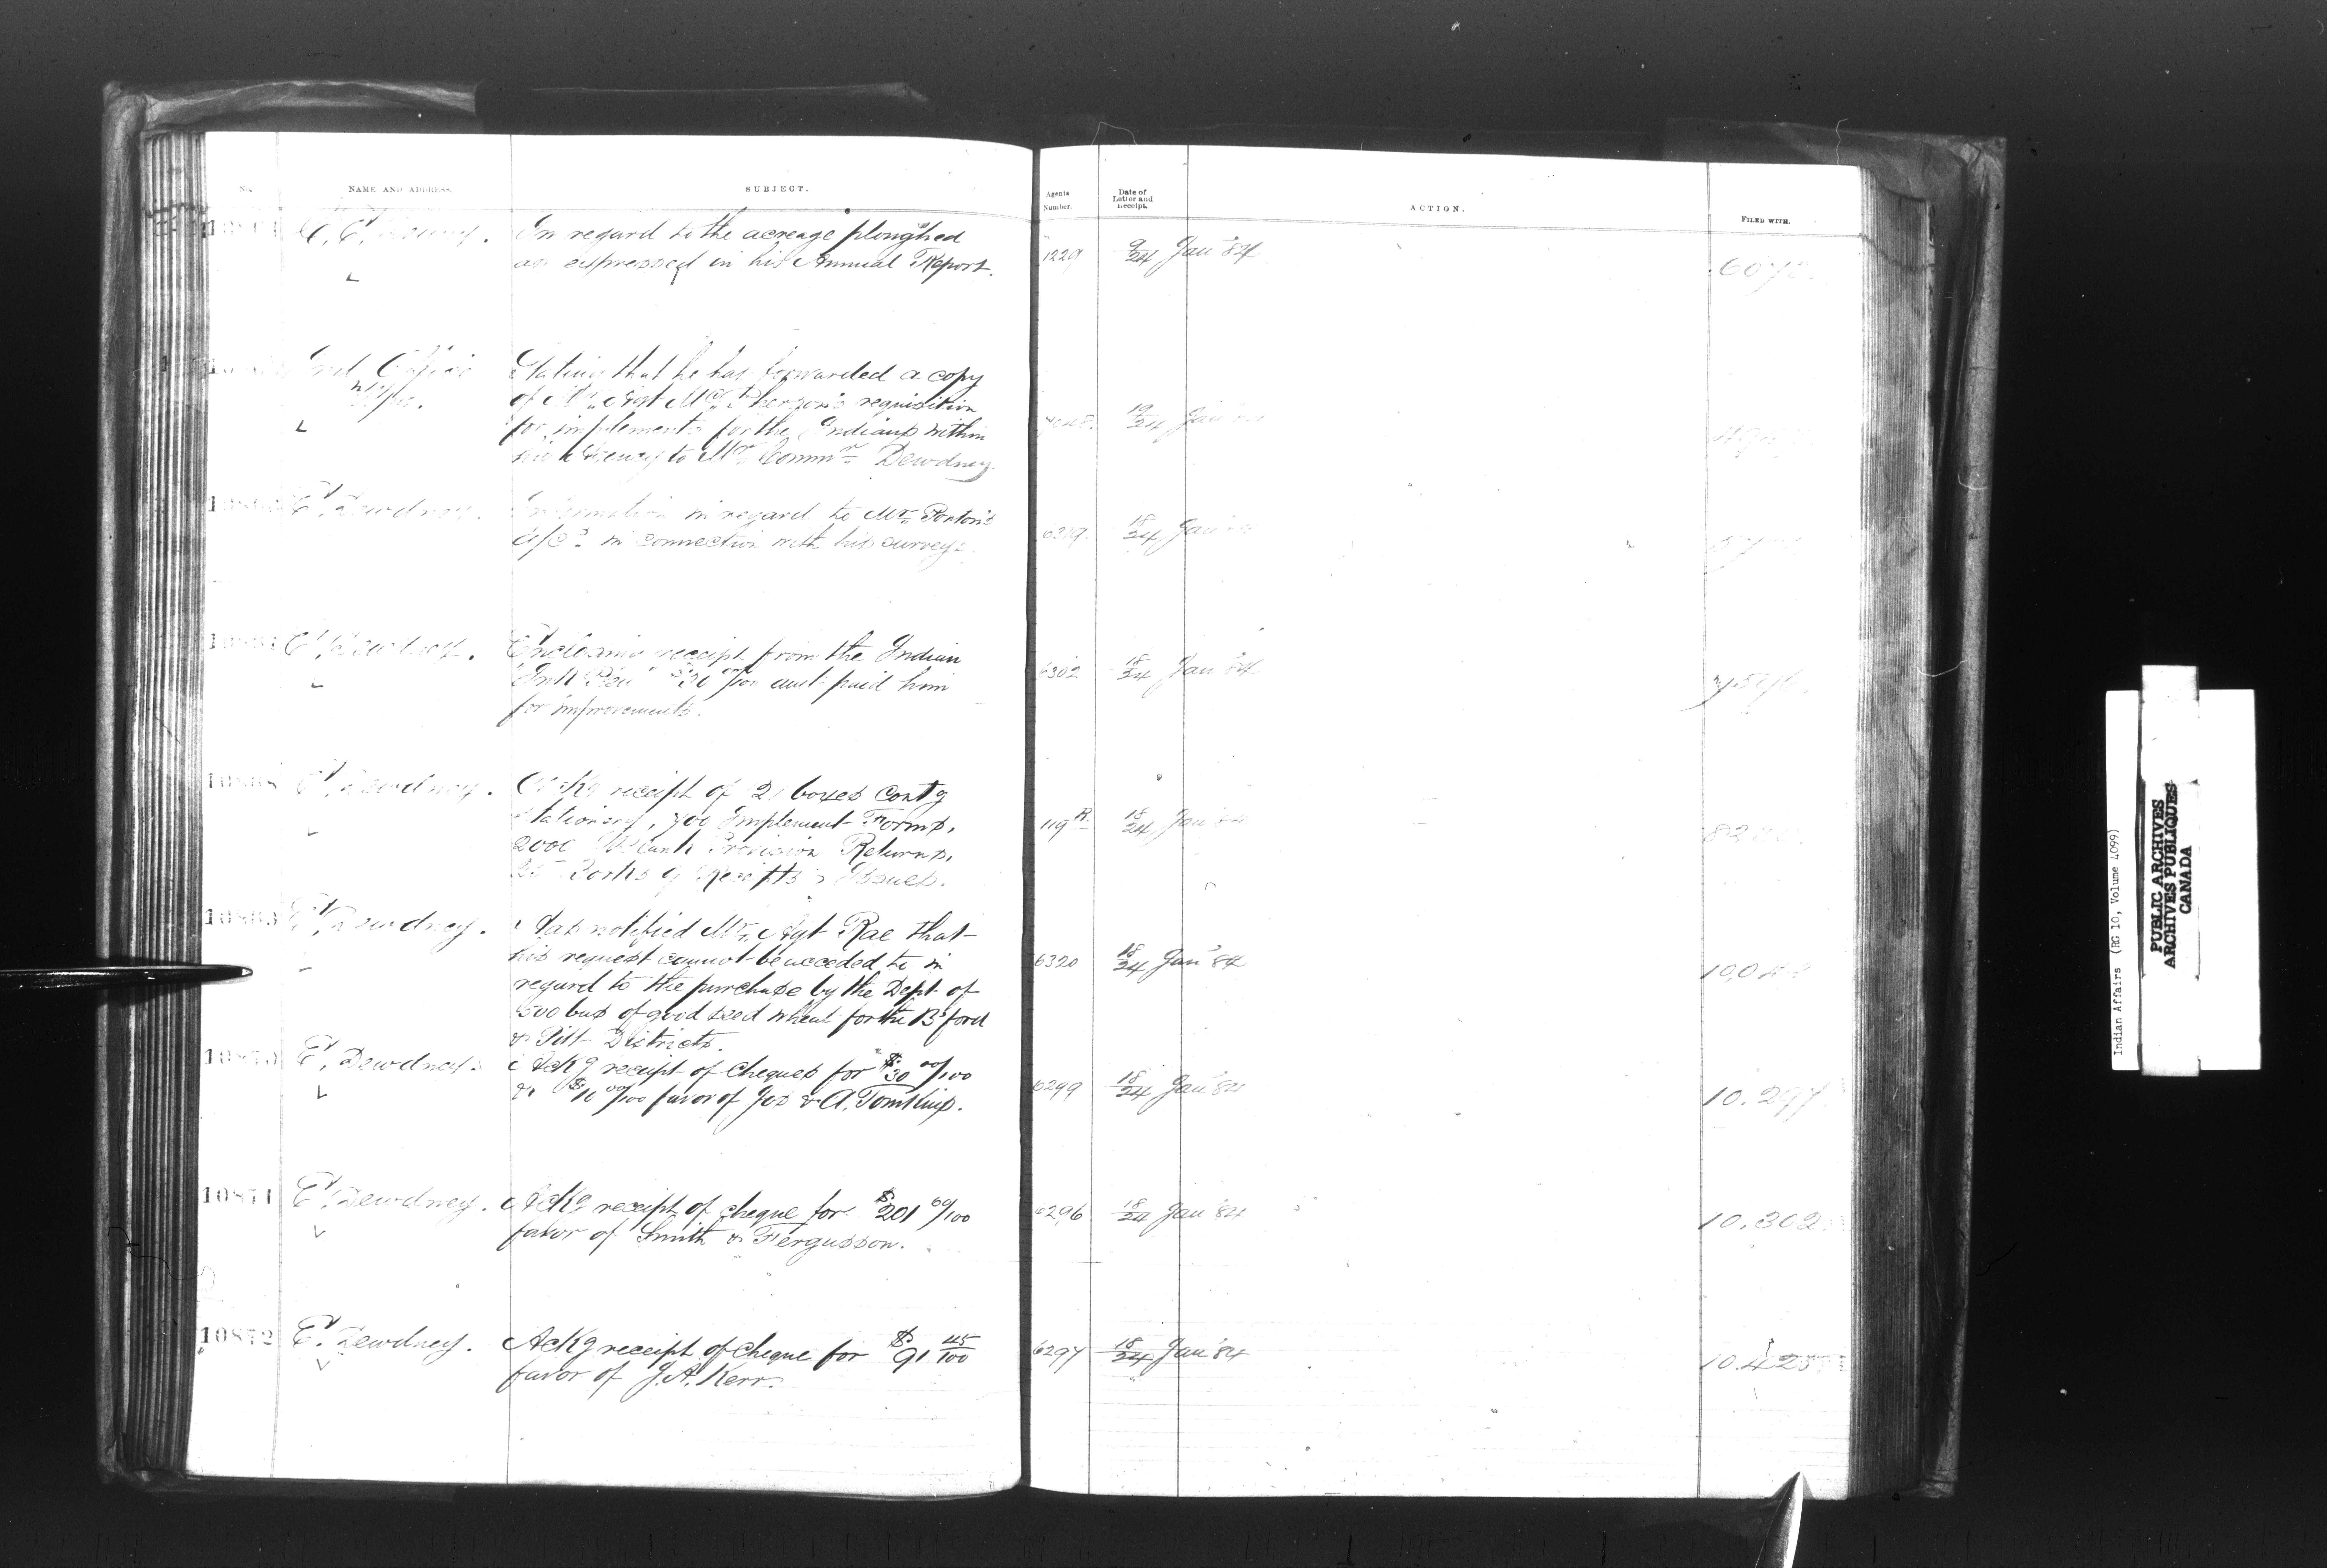 No. NAME AND ADDRESS. SUBJECT. Agents Number. Date of Letter and Receipt. ACTION. FILED WITH.
In regard to the acreage ploughed 1229 9/24 Jan '84
as expressed in his Annual Report.
Ind. Office Stating that he has forwarded a copy
of Mr. Agt McPherson's requisition 19/24 Jan
for implements for the Indians within
his Agency to Mr. Commr Dewdney.
E. Dewdney. Information in regard to Mr. Ponton's 6319 18/24 Jan
a/cs in connection with his surveys.
E. Dewdney. Enclosing receipt from the Indian 6302 18/24 Jan '84
amt paid him
for improvements.
10868 E. Dewdney. Ackg receipt of 2 boxes contg 119 R. 18/24 Jan '84
Stationery, 700 Implement Forms,
2000 Blank Provision Returns,
25 Books of Receipts & Issues.
E. Dewdney. Has notified Mr. Agt Rae that
his request cannot be acceded to in 6320 18/24 Jan '84
regard to the purchase by the Dept of
500 bus of good seed wheat for the B'ford
& Pitt Districts.
10870 E. Dewdney. Ackg receipt of cheques for $30 00/100 6299 18/24 Jan '84 10.297.
& $10 00/100 favor of Jos & A. Tomkins.
10871 E. Dewdney. Ackg receipt of cheque for $201 60/100 6296 18/24 Jan '84 10.302.
favor of Smith & Fergusson.
10872 E. Dewdney. Ackg receipt of cheque for $91 45/100 6297 18/24 Jan '84 10.425
favor of J.A. Kerr.
Indian Affairs (RG 10, Volume 4099)
PUBLIC ARCHIVES
ARCHIVES PUBLIQUES
CANADA